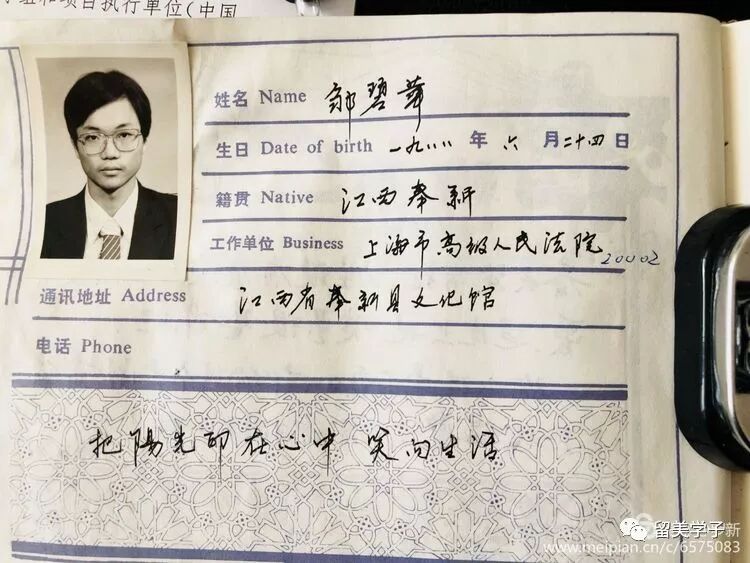 组和项目执行单位(中国
姓名 Name 邹碧華
生日 Date of birth 一九八八 年 六 月 二十四 日
籍贯 Native 江西奉新
工作单位 Business 上海市高级人民法院 20002
通讯地址 Address 江西省奉新县文化馆
电话 Phone
把陽光印在心中 笑向生活
留美学子 新
www.meipian.cn/c/6575083